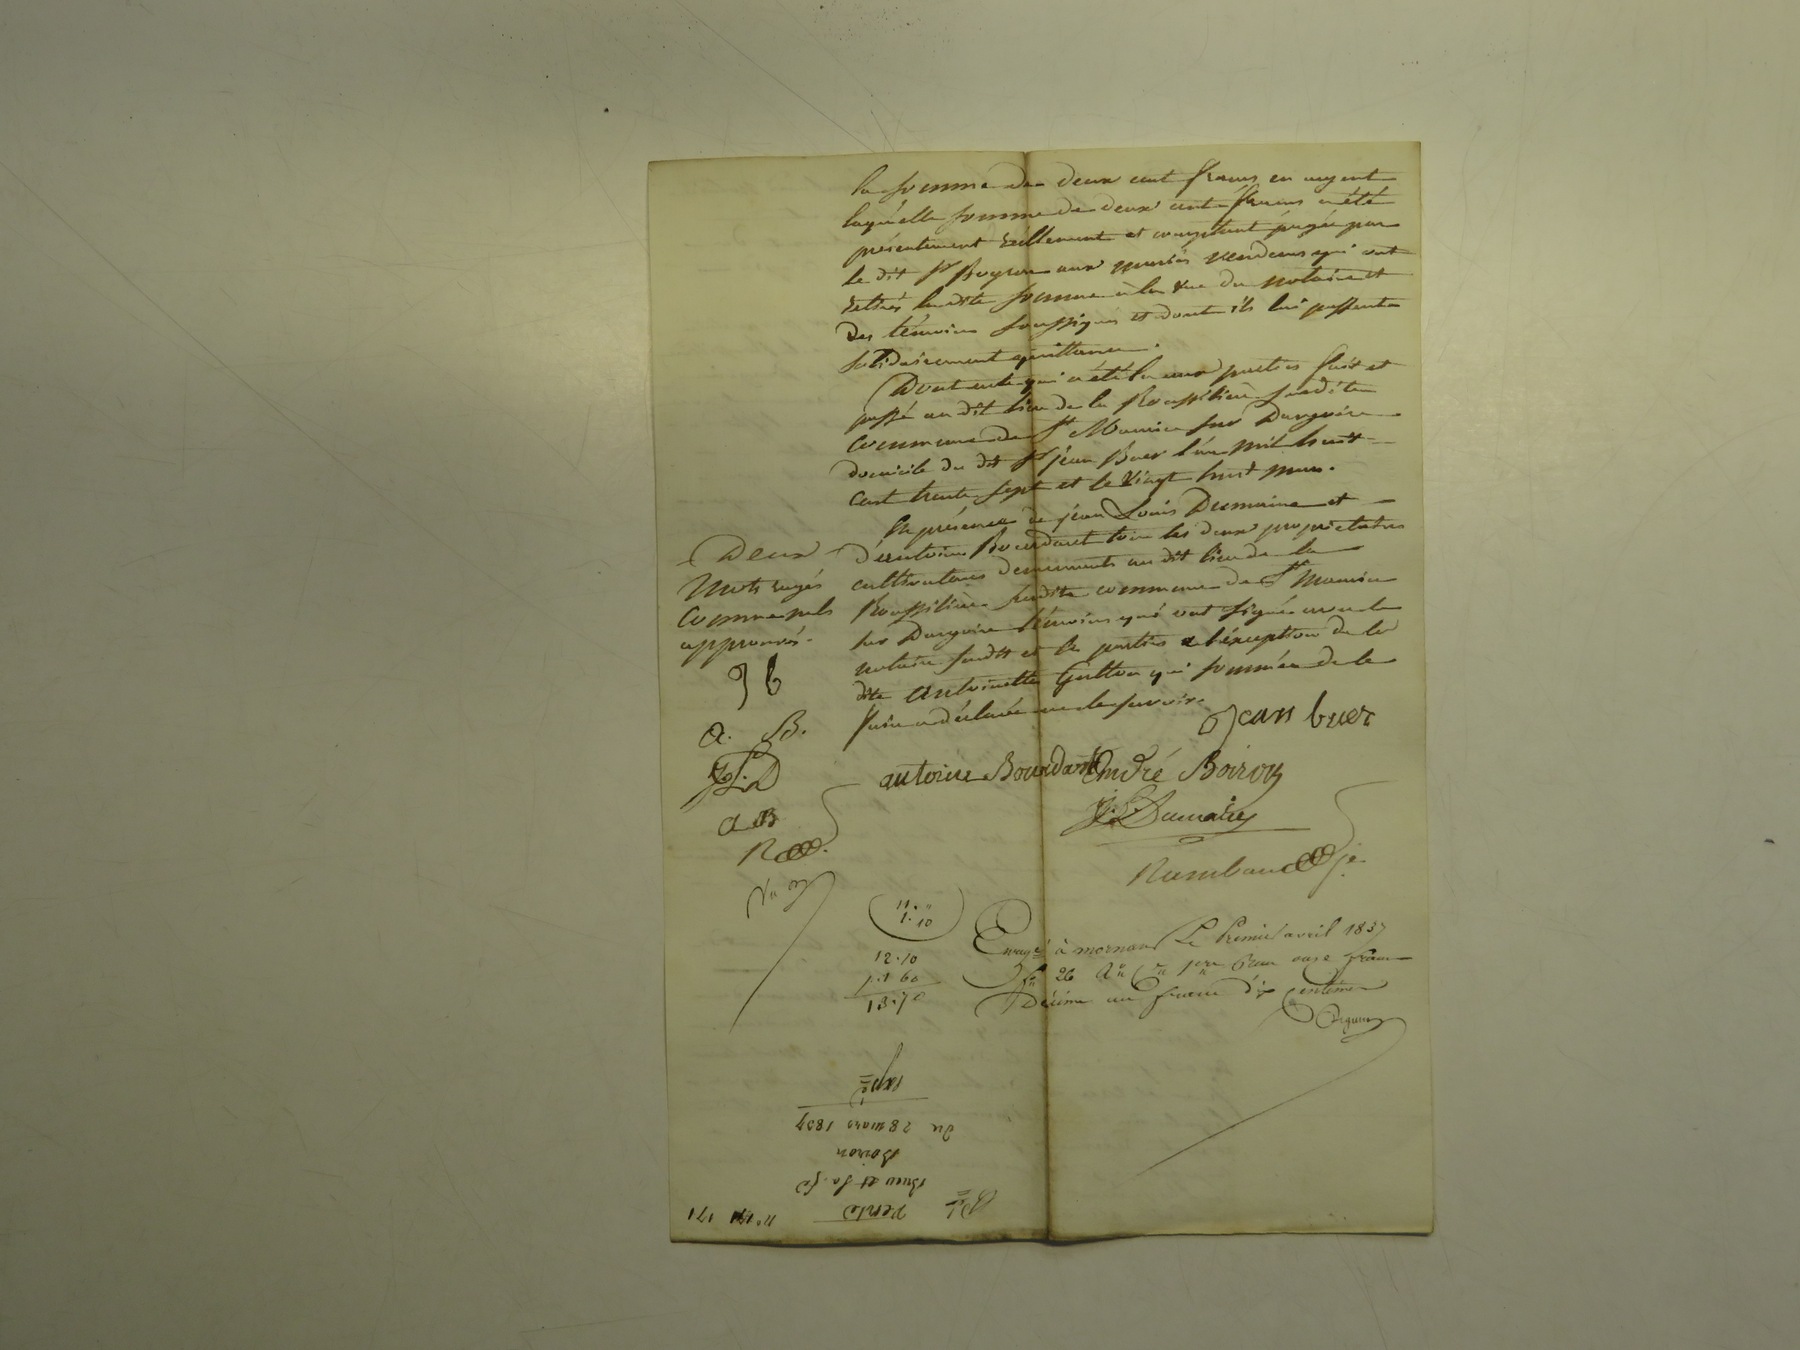 la somme de deux cent francs en argent
laquelle somme de deux cent francs a été
présentement réellement et comptant payée par
le dit Sr Boyron aux mariés vendeurs qui ont
retirés la dite somme à la vue du notaire et
des témoins soussignés et dont ils lui passent
solidairement quittance.
Dont acte qui a été lu aux parties fait et
passé au dit lieu de la Roussilière susdite
commune de St Maurice sur Dargoire
domicile du dit Sr jean Buer l'an mil huit
cent trente sept et le vingt huit mars.
En présence de jean Louis Dumaine et
d'antoine Bourdant tous les deux propriétaires
cultivateurs demeurants au dit lieu de la
Roussilière susdite commune de St Maurice
sur Dargoire témoins qui ont signé avec le
notaire susdit et les parties a l'éxception de la
dite Antoinette Guillon qui sommée de le
faire a déclarée ne le savoir.
Deux
mots rayés
comme nuls
approuvés.
J b
a. B.
J.L.D
a B
R
jean buer
antoine Bourdant André Boiron
J.L. Dumaine
Rambaud
11. "
1. 10
12.10
1.1 60
13.70
à mornant Le Premier avril 1837
fo 26 onze francs
Décime un franc dix centimes
n° 171 171
vente
Buer et sa fe
Boiron
du 28 mars 1837